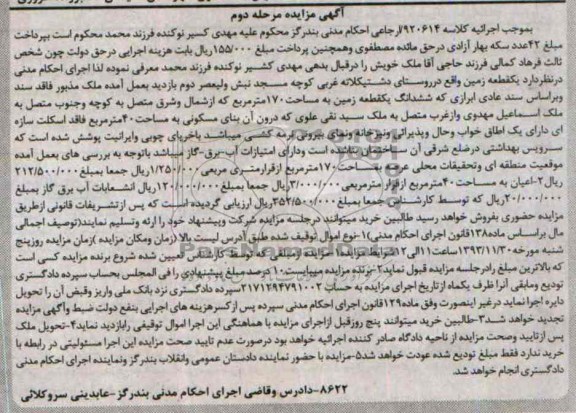 آگهی مزایده مرحله دوم
بموجب اجرائیه کلاسه ۹۲۰۶۱۴/ارجاعی احکام مدنی بندرگز محکوم علیه مهدی کسیر نوکنده فرزند محمد محکوم است بپرداخت
مبلغ ۴۲عدد سکه بهار آزادی درحق مائده مصطفوی وهمچنین پرداخت مبلغ ۱۵۵/۰۰۰ریال بابت هزینه اجرایی درحق دولت چون شخص
ثالث فرهاد کمالی فرزند حاجی آقا ملک خویش را درقبال بدهی مهدی کشیر نوکنده فرزند محمد معرفی نموده لذا اجرای احکام مدنی
درنظردارد یکقطعه زمین واقع درروستای دشتیکلاته غربی کوچه مسجد نبش ولیعصر دوم بازدید بعمل آمده ملک مذبور فاقد سند
وبراساس سند عادی ابرازی که ششدانگ یکقطعه زمین به مساحت۱۷۰مترمربع که ازشمال وشرق متصل به کوچه وجنوب متصل به
ملک اسماعیل مهدوی وازغرب متصل به ملک سید نقی علوی که درون آن بنای مسکونی به مساحت۴۰مترمربع فاقد اسکلت سازه
ای دارای یک اطاق خواب وحال وپذیرائی وآشپزخانه ونمای بیرونی میباشد باخرپای چوبی وایرانیت پوشش شده است که
سرویس بهداشتی درضلع شرقی آن ساختمان میباشد است ودارای امتیازات آب-برق-گاز میباشد باتوجه به بررسی های بعمل آمده
موقعیت منطقه ای وتحقیقات محلی به مساحت۱۷۰مترمربع ازقرارمتری مربعی ۱/۲۵۰/۰۰۰ریال جمعا بمبلغ۲۱۲/۵۰۰/۰۰۰
ریال ۲-اعیان به مساحت۴۰مترمربع ازقرار مترمربعی۳/۰۰۰/۰۰۰ریال جمعا بمبلغ ۱۲۰/۰۰۰/۰۰۰ریال انشعابات آب برق گاز بمبلغ
۲۰/۰۰۰/۰۰۰ریال که توسط کارشناس جمعا بمبلغ۳۵۲/۵۰۰/۰۰۰ریال ارزیابی گردیده است که پس ازتشریفات قانونی ازطریق
مزایده حضوری بفروش خواهد رسید طالبین خرید میتوانند درجلسه مزایده شرکت وپیشنهاد خود را ارئه وتسلیم نمایند(توصیف اجمالی
مال براساس ماده۱۳۸قانون اجرای احکام مدنی)۱-نوع اموال توقیف شده طبق آدرس لیست بالا (زمان ومکان مزایده )زمان مزایده روزپنج
شنبه مورخه۱۳۹۳/۱۱/۳۰ساعت۱۱الی۱۲شرایط مزایده۱-مزایده ازمبلغی که توسط کارشناس تعیین شده شروع برنده مزایده کسی است
که بالاترین مبلغ رادرجلسه مزایده قبول نماید۲-برنده مزایده میبایست۱۰درصد مبلغ پیشنهادی را فی المجلس بحساب سپرده دادگستری
تودیع ومابقی آنرا ظرف یکماه ازتاریخ اجرای مزایده به حساب ۲۱۷۱۲۹۴۷۹۱۰۰۲سپرده دادگستری نزد بانک ملی واریز وقبض آن را تحویل
دایره اجرا نماید درغیر اینصورت وفق ماده۱۲۹قانون اجرای احکام مدنی سپرده پس ازکسرهزینه های اجرایی بنفع دولت ضبط وآگهی مزایده
تجدید خواهد شد۳-طالبین خرید میتوانند پنج روزقبل ازاجرای مزایده با هماهنگی این اجرا اموال توقیفی رابازدید نماید۴-تحویل ملک
پس ازتایید وصحت مزایده از ناحیه دادگاه صادر کننده اجرائیه خواهد بود درصورت عدم تایید صحت مزایده این اجرا مسئولیتی در رابطه با
خرید ندارد فقط مبلغ تودیع شده عودت خواهد شد۵-مزایده با حضور نماینده دادستان عمومی وانقلاب بندرگز ونماینده اجرای احکام مدنی
دادگستری انجام خواهد شد.
۸۶۲۲-دادرس وقاضی اجرای احکام مدنی بندرگز-عابدینی سروکلائی